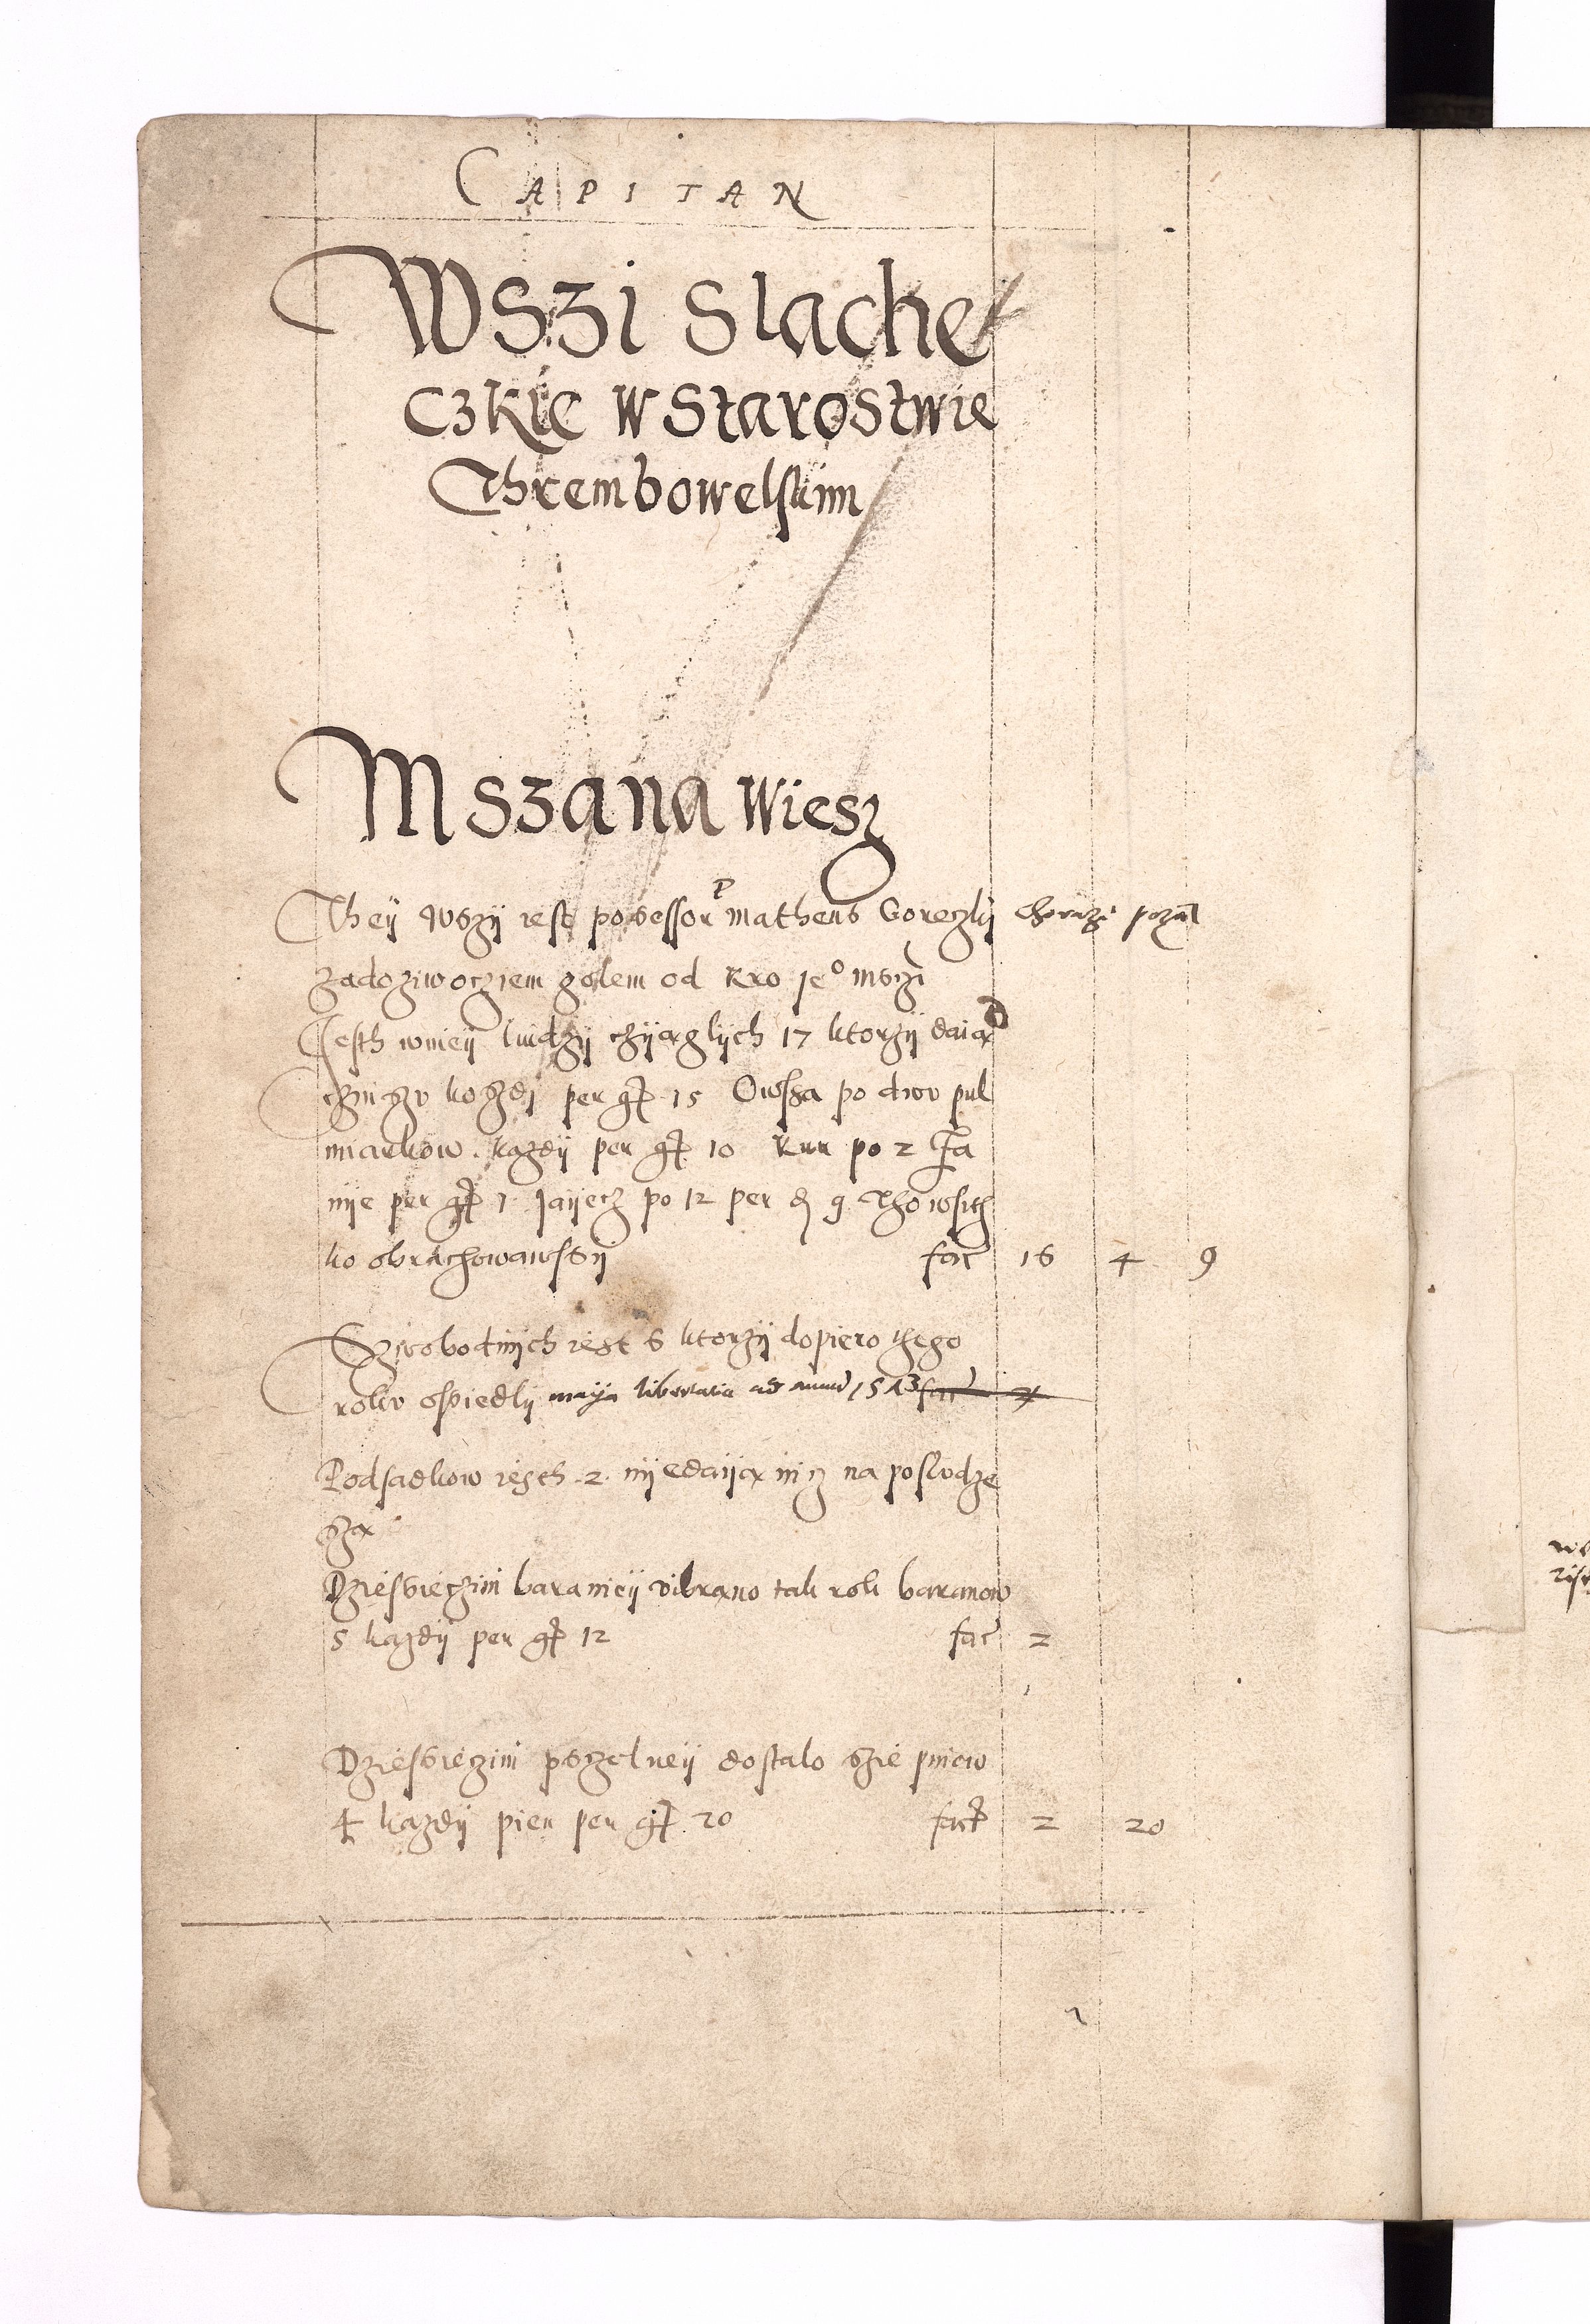 CAPITAN
Wszi Slache
czkie w Starostwie
Thrembowelskim
Mszana wiesz
Theÿ wszÿ iest possessor P Matheus Goreczkÿ
zadoziwocziem golem od Kro Je⁰ mczi
Jesth wnieÿ ludzÿ czÿąglÿch 17 ktorzÿ daią
czinszu kozdÿ per gr 15 Owssa po dwu pul
miarkow. kazdÿ per gr 10 Kur po 2 ka
nÿe per gr 1 Jaÿecz po 12 per d 9 Tho wsith
ko obrachowawssÿ fac 16 4 9
Szwobodnÿch iest 6 ktorzÿ dopiero thego
roku ossiedlÿ maÿa libertatia ad annum fac
Podsadkow iesth 2. nÿedaÿą nicz na posludze
szą
Dziessieczini baranieÿ vibrano tak rok baranow
5 kazdÿ per gr 12 fac 2
Dziessieczini psczelneÿ dostalo szie pniow
4 kazdÿ pien per gr 20 fact 2 20